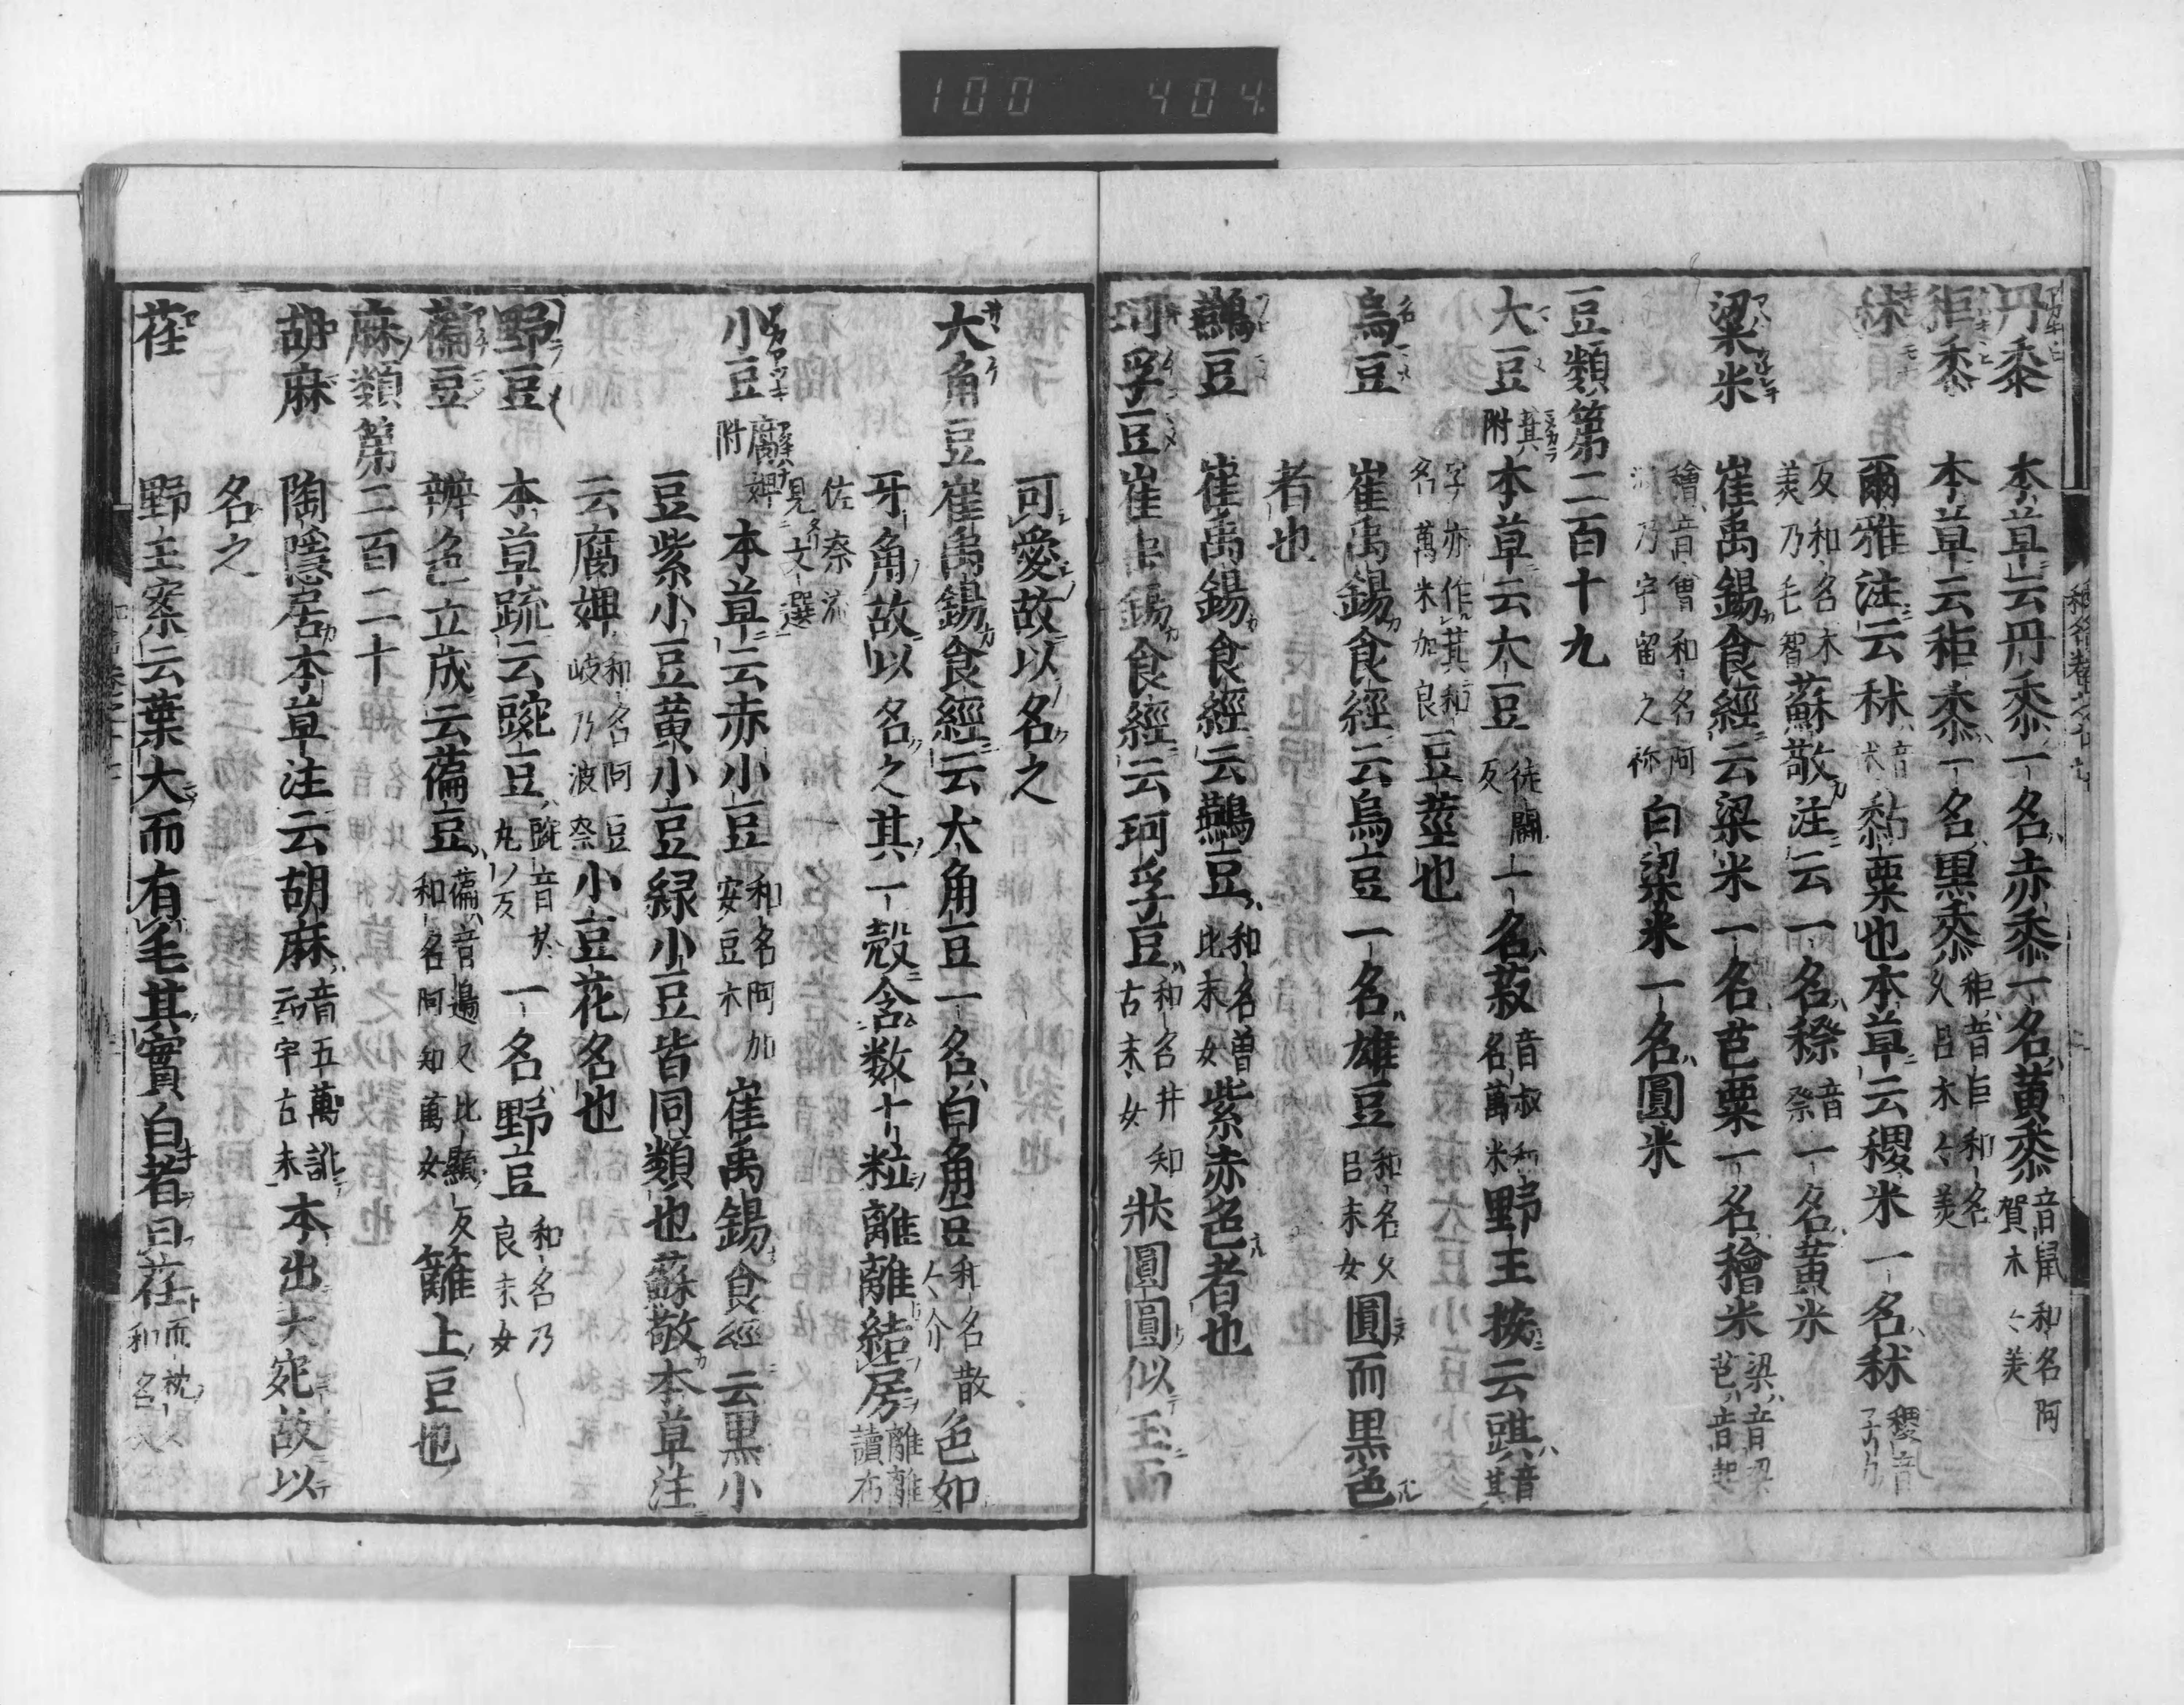 100 404
丹黍 本草云丹黍一名赤黍一名黄黍音鼠和名阿賀木々美
秬黍 本草云秬黍一名黒黍秬音巨和名久呂木々美
秫 爾雅注云秫音黏粟也本草云稷米一名秫稷音子力
反和名木美乃毛智蘇敬注云一名穄音祭一名黄米
粱米 崔禹錫食經云粱米一名芑粟一名穭米粱音梁芑音起
穭音和名阿乃宇留之祢白粱米一名圓米
豆類第二百十九
大豆附萁 本草云大豆徒闘反一名菽音叔和名萬米野王按云䜺音其
字亦作萁和名萬米加良豆莖也
烏豆 崔禹錫食經云烏豆一名雄豆和名久呂末女圓而黒色
者也
鷰豆 崔禹錫食經云鷰豆和名曽比末女紫赤色者也
珂孚豆 崔禹錫食經云珂孚豆和名井知古末女狀圓圓似玉而
可愛故以名之
大角豆 崔禹錫食經云大角豆一名白角豆和名散々介色如
牙角故以名之其一殻含数十粒離離結房離離讀布
佐奈流見文選
小豆附腐婢 本草云赤小豆和名阿加安豆木崔禹錫食經云黒小
豆紫小豆黄小豆緑小豆皆同類也蘇敬本草注
云腐婢和名阿豆岐乃波奈小豆花名也
野豆 本草疏云豌豆豌音丸一名野豆和名乃良末女
藊豆 辨色立成云藊豆藊音邊又比顯反和名阿知萬女籬上豆也
麻類第二百二十
胡麻 陶隱居本草注云胡麻音五萬訛云宇古末本出大宛故以
名之
荏 野王案云葉大而有毛其實白者曰荏而枕反和名